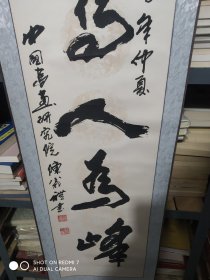 年仲夏
高人为峰
中国书画研究院
SHOT ON REDMI 7
AI DUAL CAMERA